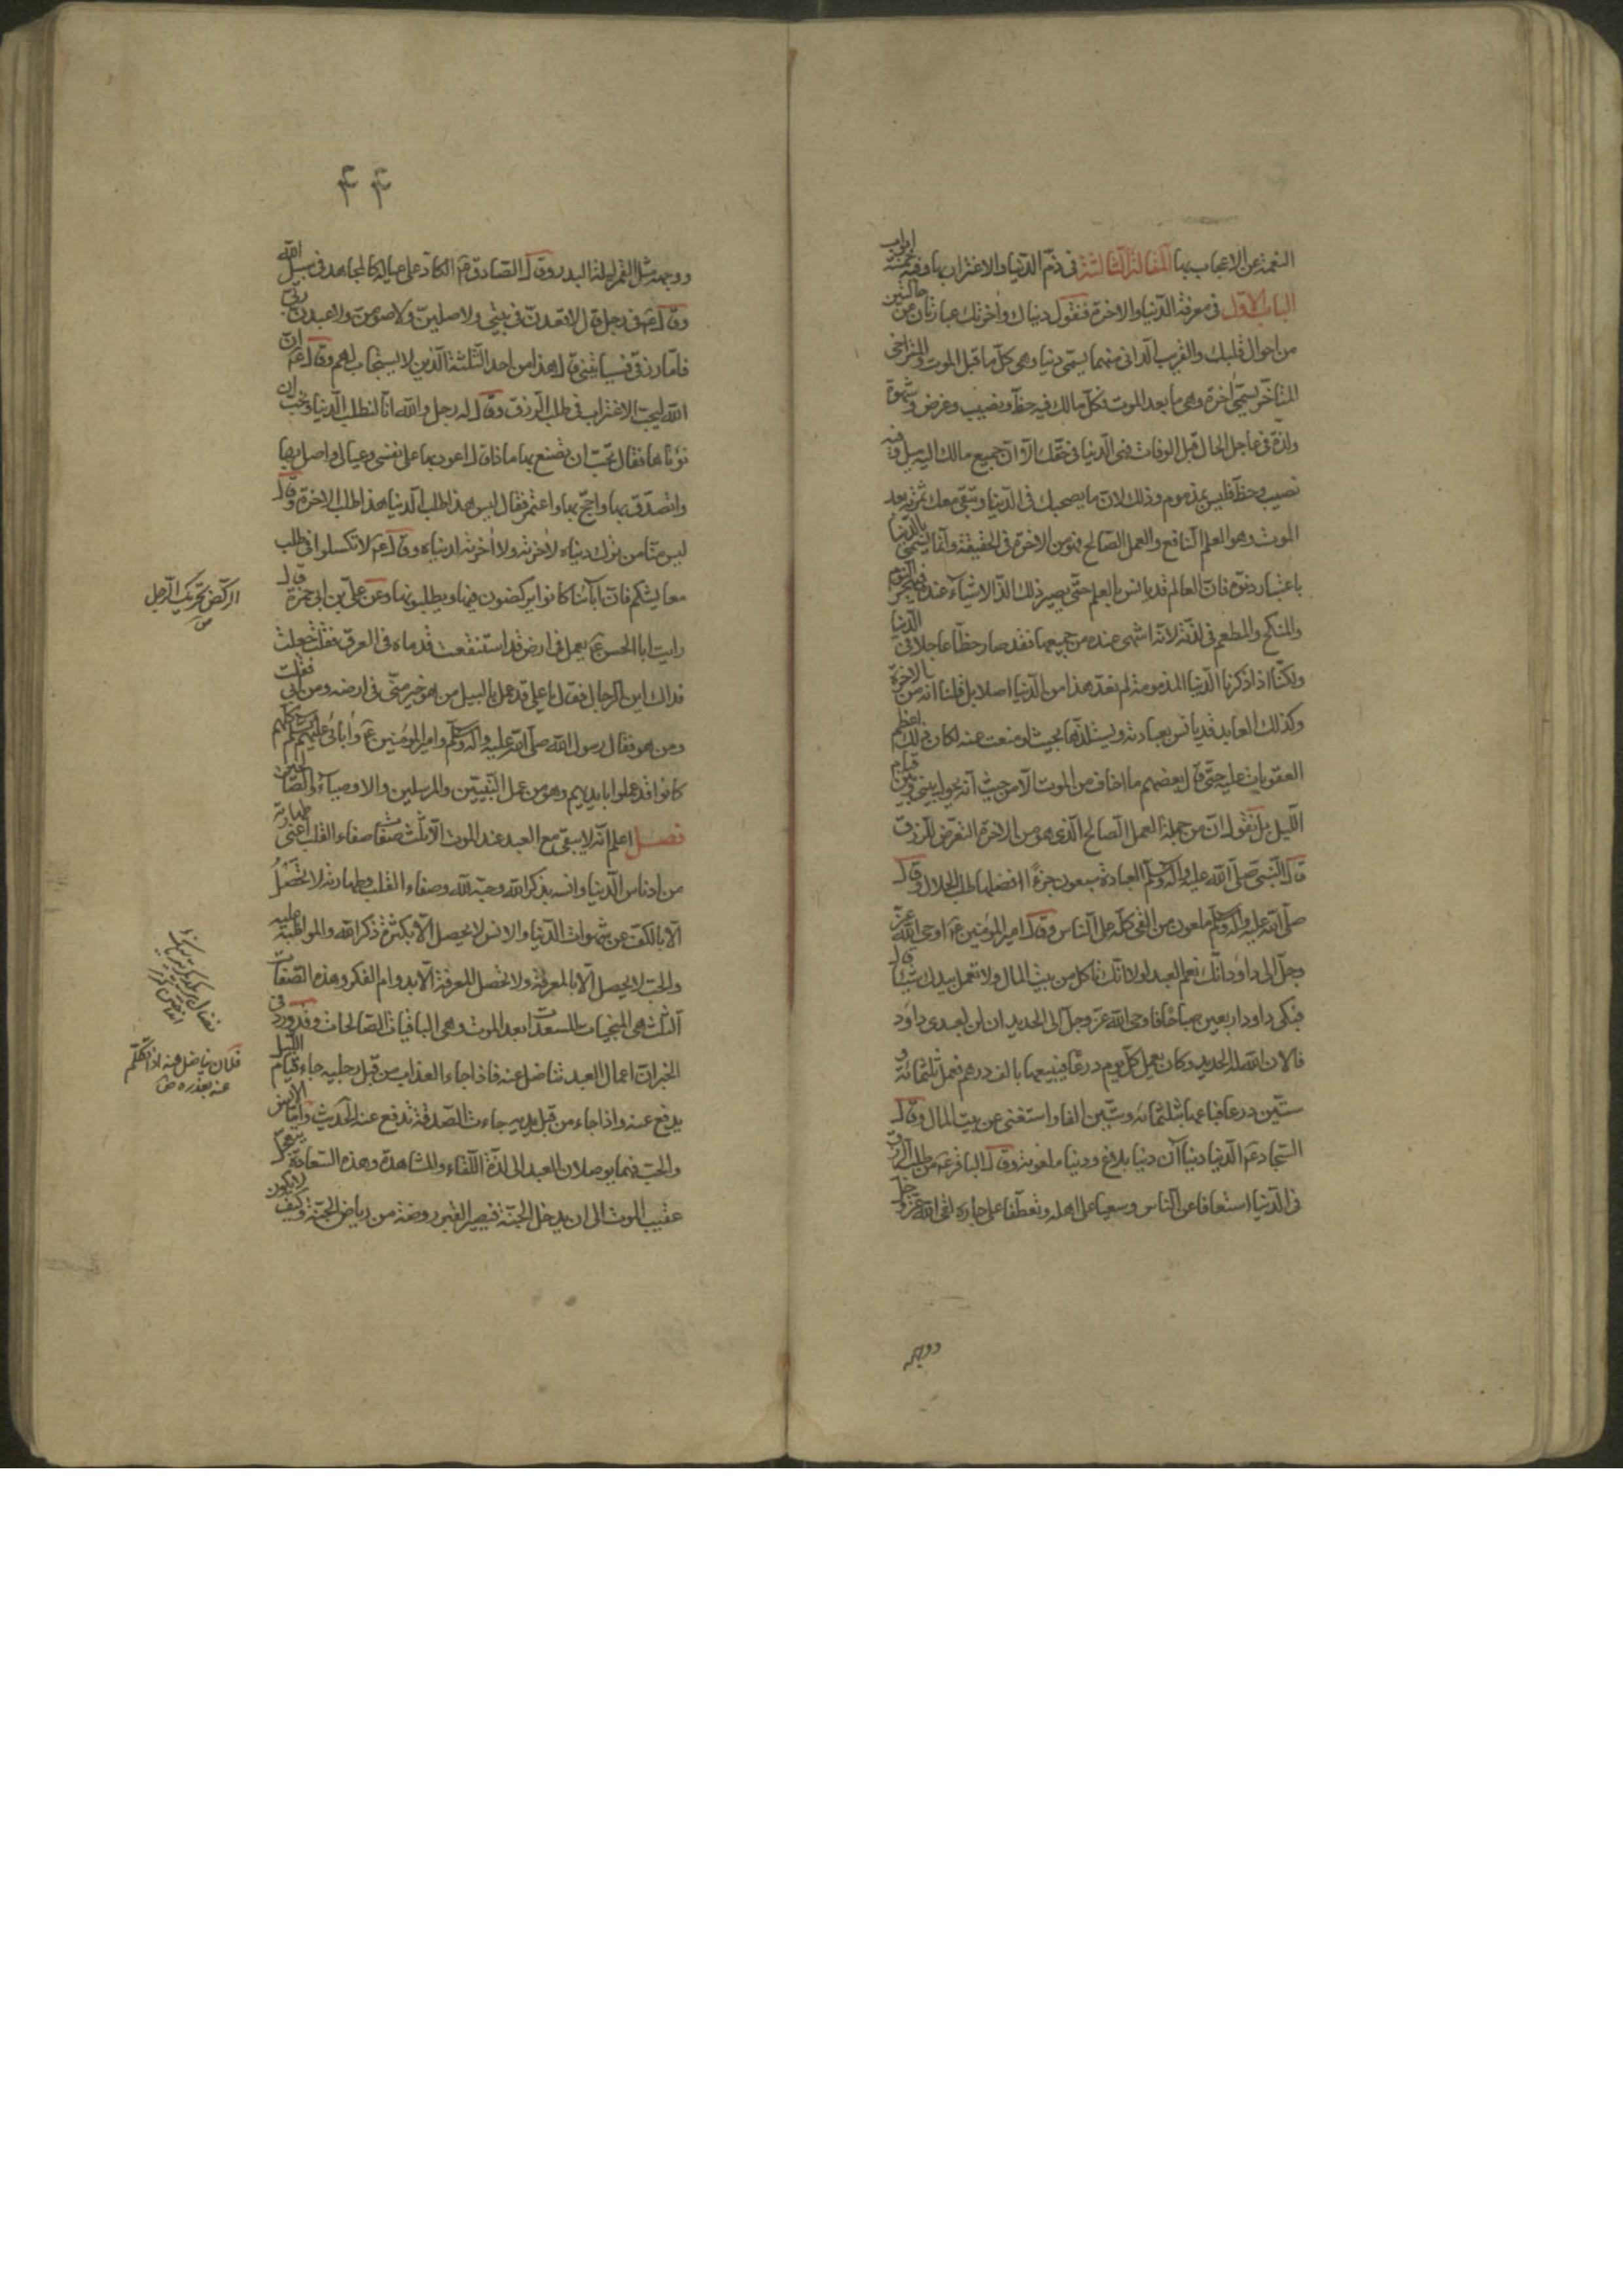 النعمة عن الاعجاب بها المقالة الثالثة في ذم الدنيا والاغترار بها وفيه خمسة ابواب
الباب الاول في معرفة الدنيا والاخرة فنقول دنياك واخرتك عبارتان عن حالتين
من احوال قلبك والقريب الداني منهما يسمى دنيا وهي كل ما قبل الموت والمتراخي
المتاخر يسمى اخرة وهي ما بعد الموت فكل مالك فيه حظ ونصيب وغرض وشهوة
ولذة في عاجل الحال قبل الوفات فهي الدنيا في حقك الا ان جميع مالك اليه ميل وفيه
نصيب وحظ فليس بمذموم وذلك لان ما يصحبك في الدنيا وتبقى معك ثمرته بعد
الموت وهو العلم النافع والعمل الصالح فهو من الاخرة في الحقيقة وانما يسمى بالدنيا
باعتبار دنوه فان العالم قد يانس بالعلم حتى يصير ذلك الذ الاشياء عنده فيهجر النوم
والمنكح والمطعم في لذته لانه اشهى عنده من جميعها فقد صار حظا عاجلا في الدنيا
ولكنا اذا ذكرنا الدنيا المذمومة لم نعد هذا من الدنيا اصلا بل قلنا انه من الاخرة
وكذلك العابد قد يانس بعبادته ويستلذها بحيث لو منعت عنه لكان ذلك اعظم
العقوبات عليه حتى قال بعضهم ما اخاف من الموت الا من حيث انه يحول بيني وبين قيام
الليل بل نقول ان من جملة العمل الصالح الذي هو من الاخرة التعرض للرزق
قال النبي صلى الله عليه واله وسلم العبادة سبعون جزءا افضلها طلب الحلال وقال
صلى الله عليه واله وسلم ملعون من القى كله على الناس وقال امير المؤمنين ع اوحى الله عز
وجل الى داود انك نعم العبد لولا انك تاكل من بيت المال ولا تعمل بيدك شيئا قال
فبكى داود اربعين صباحا فاوحى الله عز وجل الى الحديد ان لن لعبدي داود
فالان الله له الحديد وكان يعمل كل يوم درعا فيبيعها بالف درهم فعمل ثلثمائة و
ستين درعا فباعها بثلثمائة وستين الفا واستغنى عن بيت المال وقال
السجاد ع الدنيا دنياآن دنيا بلاغ ودنيا ملعونة وقال الباقر ع من طلب الرزق
في الدنيا استعفافا عن الناس وسعيا على اهله وتعطفا على جاره لقى الله عز وجل
ووجهه
٤٤
ووجهه مثل القمر ليلة البدر وقال الصادق ع الكاد على عياله كالمجاهد في سبيل الله
وقال ع في رجل قال لاقعدن في بيتي ولاصلين ولاصومن ولاعبدن ربي
فاما رزقي فسياتيني قال هذا من احد الثلثة الذين لا يستجاب لهم وقال ع ان
الله ليحب الاغتراب في طلب الرزق وقال له رجل والله انا لنطلب الدنيا ونحب ان
نؤتاها فقال تحب ان تصنع بها ماذا قال اعود بها على نفسي وعيالي واصل بها
واتصدق بها واحج بها واعتمر فقال ليس هذا طلب الدنيا هذا طلب الاخرة وقال
ليس منا من ترك دنياه لاخرته ولا اخرته لدنياه وقال ع لا تكسلوا في طلب
معايشكم فان آبائنا كانوا يركضون فيها ويطلبونها وعن علي بن ابي حمزة قال
رايت ابا الحسن ع يعمل في ارض قد استنقعت قدماه في العرق فقلت جعلت
فداك اين الرجال فقال يا علي قد عمل بالبيل من هو خير مني في ارضه ومن ابي فقلت
ومن هو فقال رسول الله صلى الله عليه واله وسلم وامير المؤمنين ع وآبائي عليهم السلم كلهم
كانوا قد عملوا بايديهم وهو من عمل النبيين والمرسلين والاوصياء والصالحين
فصل اعلم انه لا يبقى مع العبد عند الموت الا ثلث صفات صفاء القلب اعني طهارته
من ادناس الدنيا وانسه بذكر الله وحبه لله وصفاء القلب وطهارته لا تحصل
الا بالكف عن شهوات الدنيا والانس لا يحصل الا بكثرة ذكر الله والمواظبة عليه
والحب لا يحصل الا بالمعرفة ولا تحصل المعرفة الا بدوام الفكر وهذه الصفات
الثلث هي المنجيات المسعدات بعد الموت وهي الباقيات الصالحات وقد ورد في
الخبر ان اعمال العبد تناضل عنه فاذا جاء العذاب من قبل رجليه جاء قيام الليل
يدفع عنه واذا جاء من قبل يديه جاءت الصدقة تدفع عنه الحديث واما الانس
والحب فهما يوصلان العبد الى لذة اللقاء والمشاهدة وهذه السعادة تتعجل
عقيب الموت الى ان يدخل الجنة فيصير القبر روضة من رياض الجنة وكيف لا يكون
الركض تحريك الرجل
ص
فلان يناضل عنه اذا تكلم
عنه بعذره ص